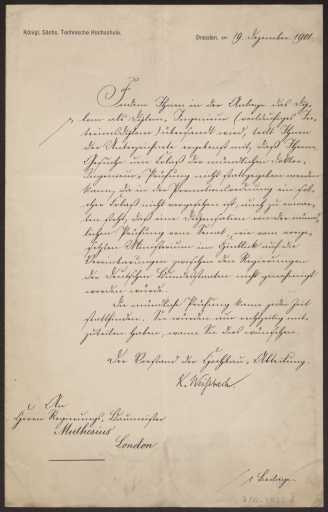 Königl. Sächs. Technische Hochschule.
Dresden, am 19. Dezember 1901.
Indem Ihnen in der Anlage das Dip-
lom als Diplom-Ingenieur
übersandt wird, teilt Ihnen
der Unterzeichnete ergebenst mit, daß Ihrem
Gesuche um Erlaß der mündlichen Doktor-
Ingenieur-Prüfung nicht stattgegeben werden
kann, da in der Promotionsordnung ein sol-
cher Erlaß nicht vorgesehen ist, auch zu erwar-
ten steht, daß eine Dispensation von der münd-
lichen Prüfung vom Senat, wie vom vorge-
setzten Ministerium im Hinblick auf die
Vereinbarungen zwischen den Regierungen
der Deutschen Bundesstaaten nicht genehmigt
werden würde.
Die mündliche Prüfung kann jeder Zeit
stattfinden. Sie würden nur rechtzeitig mit-
zuteilen haben, wann Sie dies wünschen.
Der Vorstand der Hochbau-Abteilung.
K. Weißbach
An
Herrn Regierungs-Baumeister
Muthesius
London
1 Beilage.